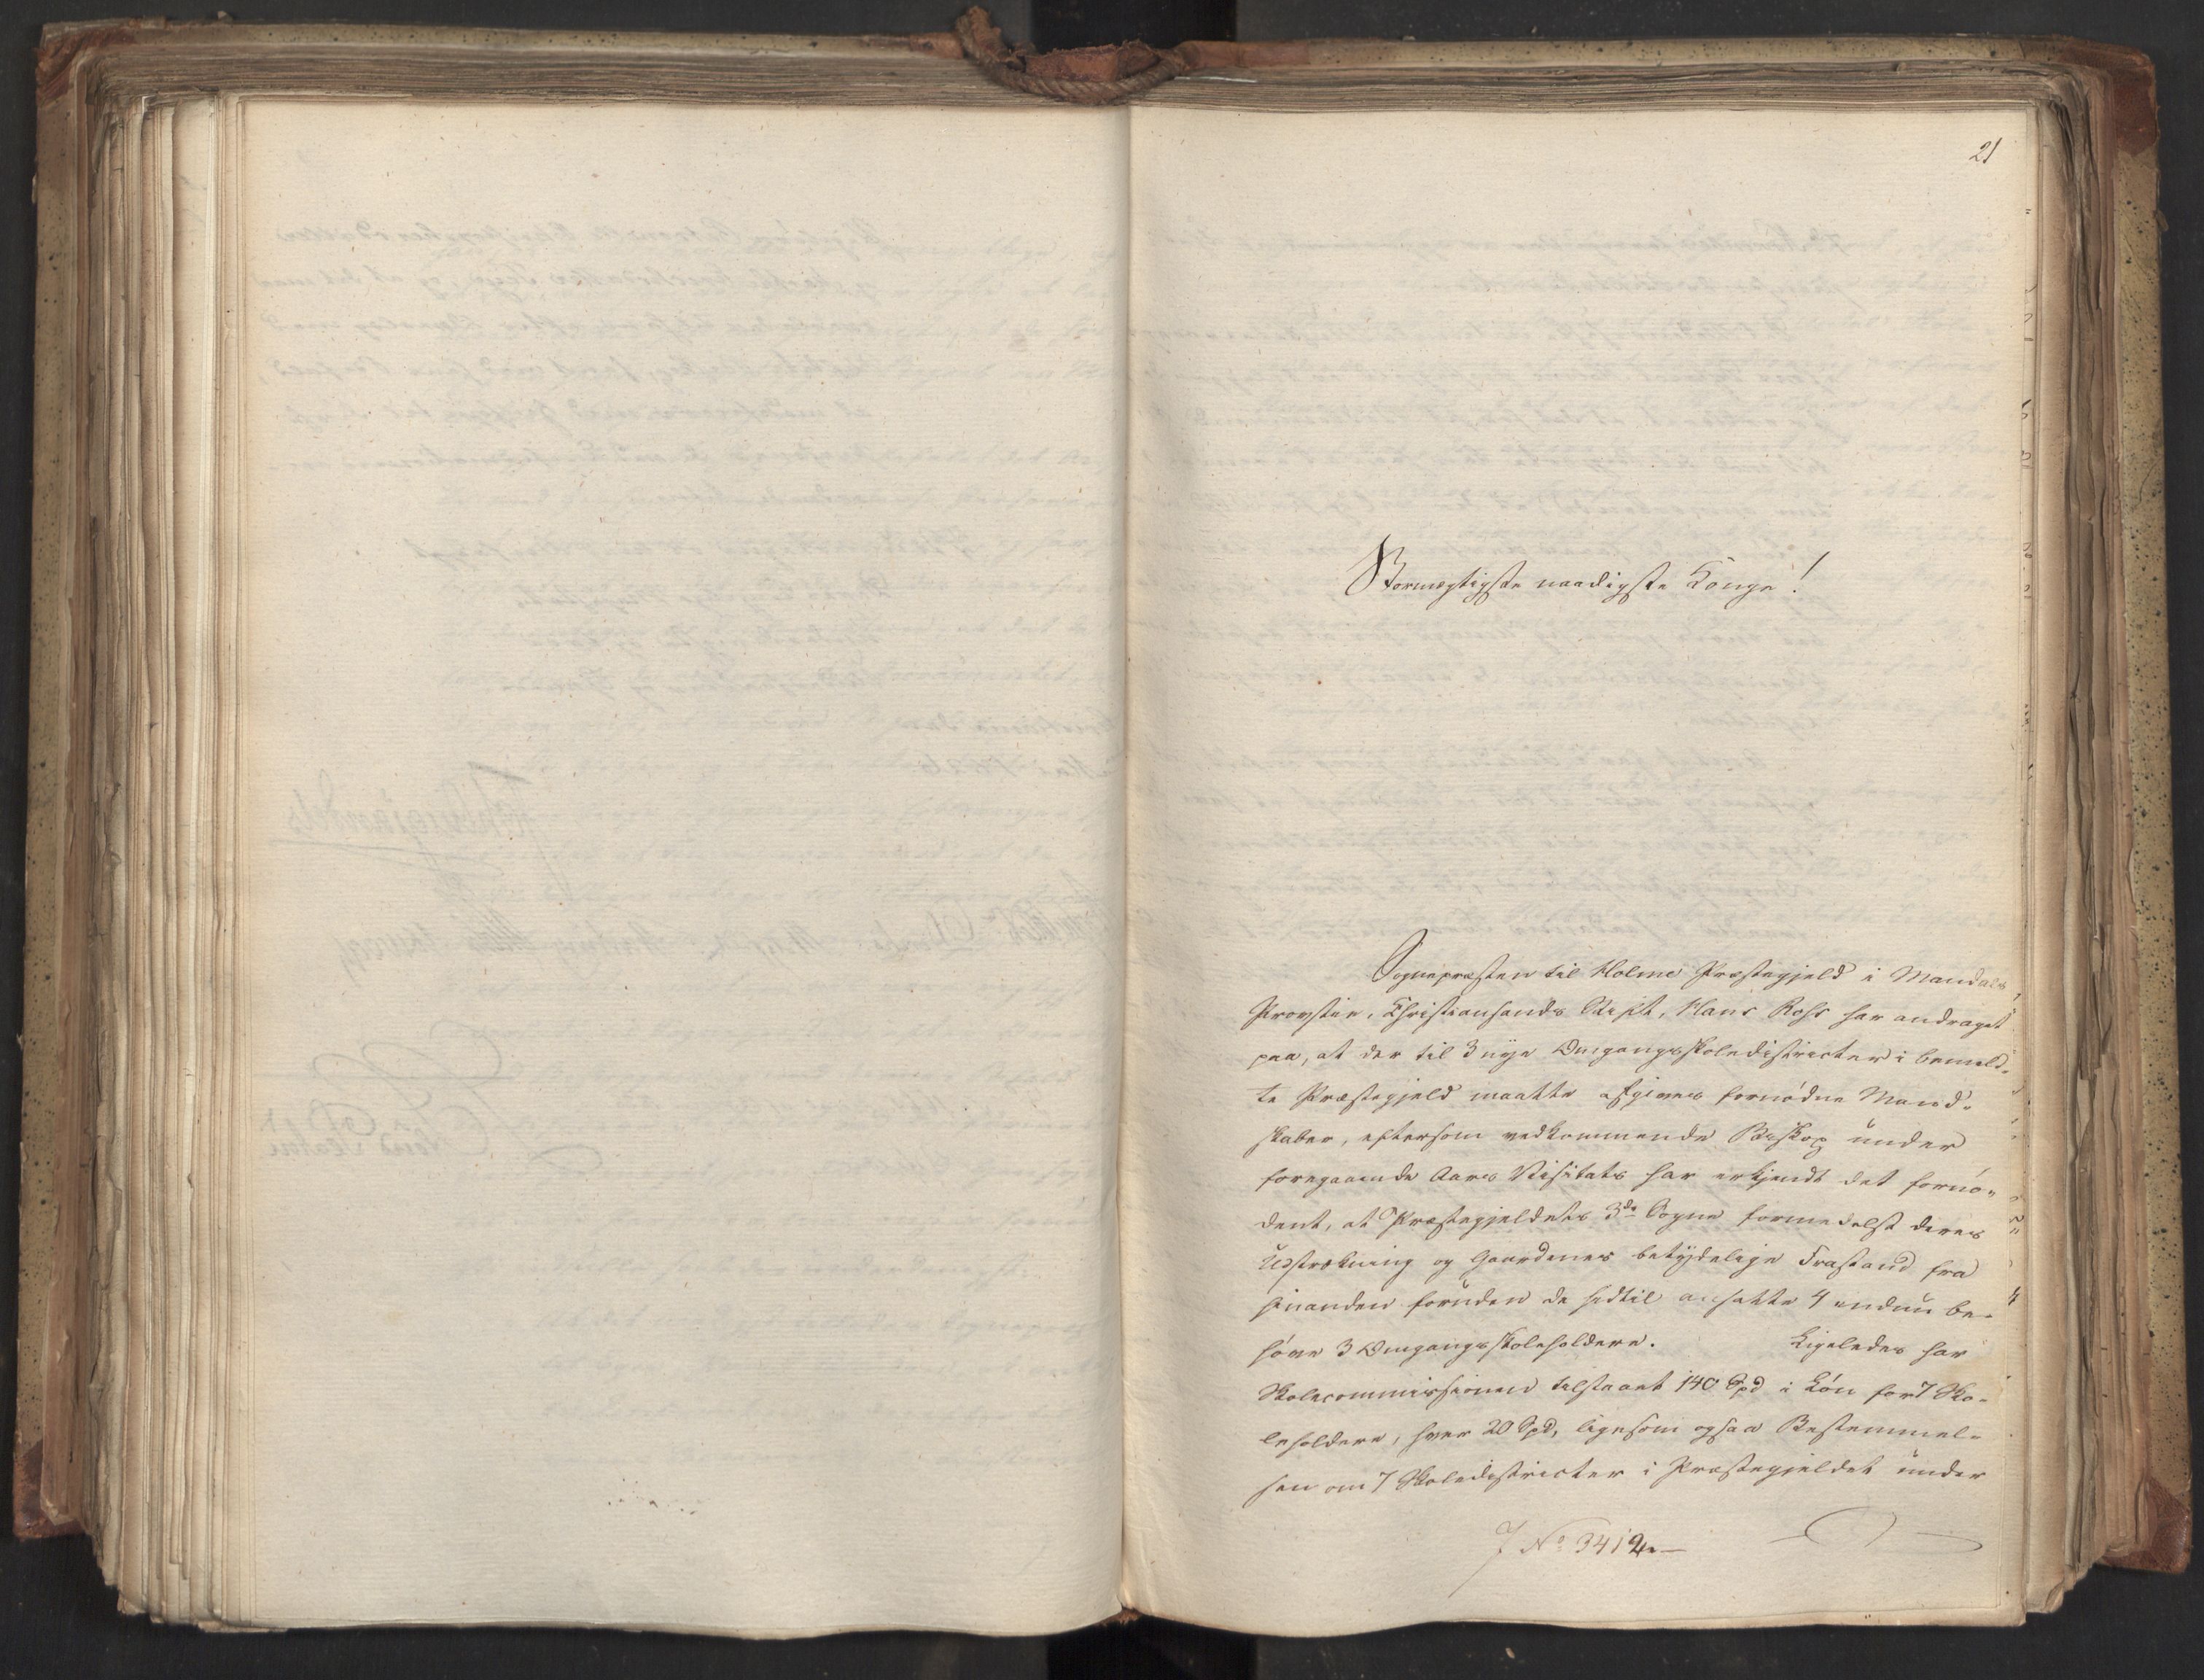 21
Stormægtigste naadigste Konge!
Sognepræsten til Holme Præstegjeld i Mandals
Provstie, Christiansands Stift, Hans Ross har andraget
paa, at der til 3 nye Omgangsskoledistricter i bemeld-
te Præstegjeld maatte afgives fornødne Mand-
skaber, eftersom vedkommende Biskop under
foregaaende Aars Visitats har erkjendt det fornø-
dent, at Præstegjeldets 3de Sogne formedelst deres
Udstrækning og Gaardenes betydelige Frastand fra
hinanden foruden de hidtil ansatte 4 endnu be-
høve 3 Omgangsskoleholdere. Ligeledes har
Skolecommissionen tilstaaet 140 Spd i Løn for 7 Sko-
leholdere, hver 20 Spd, ligesom ogsaa Bestemmel-
sen om 7 Skoledistricter i Præstegjeldet under
J No 3412